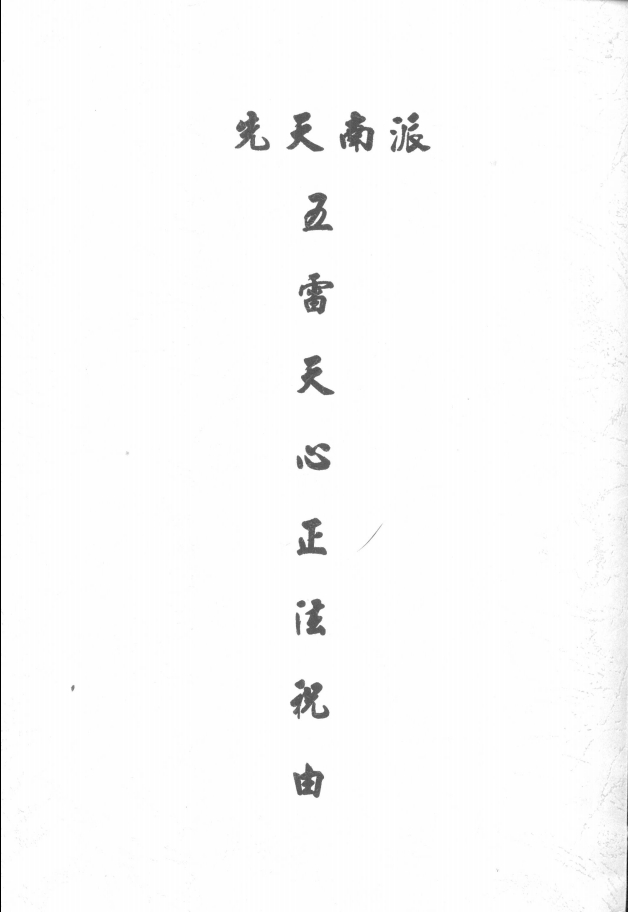 先天南派
五雷天心正法祝由